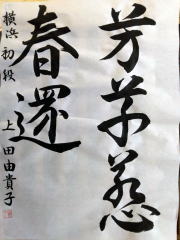 芳草
春還
横浜 初段 上田由貴子